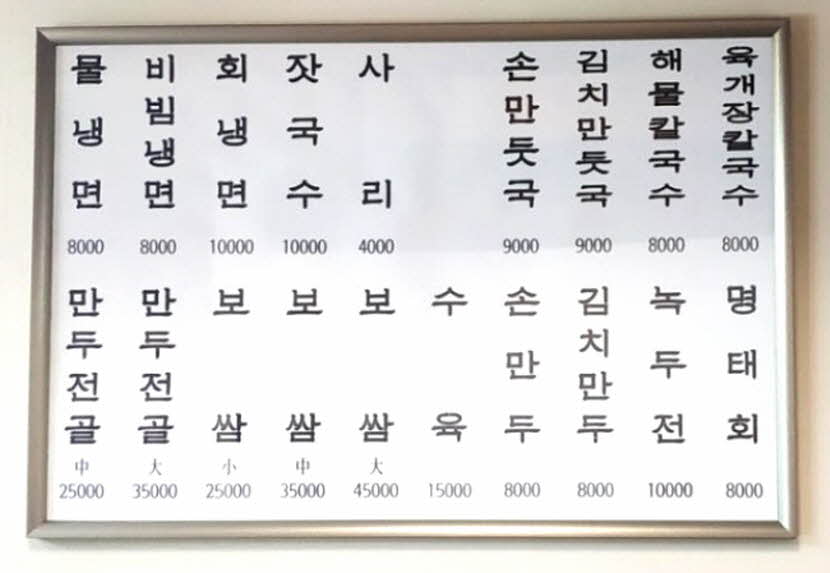 물냉면 8000
비빔냉면 8000
회냉면 10000
잣국수 10000
사리 4000
손만둣국 9000
김치만둣국 9000
해물칼국수 8000
육개장칼국수 8000
만두전골 中 25000
만두전골 大 35000
보쌈 小 25000
보쌈 中 35000
보쌈 大 45000
수육 15000
손만두 8000
김치만두 8000
녹두전 10000
명태회 8000